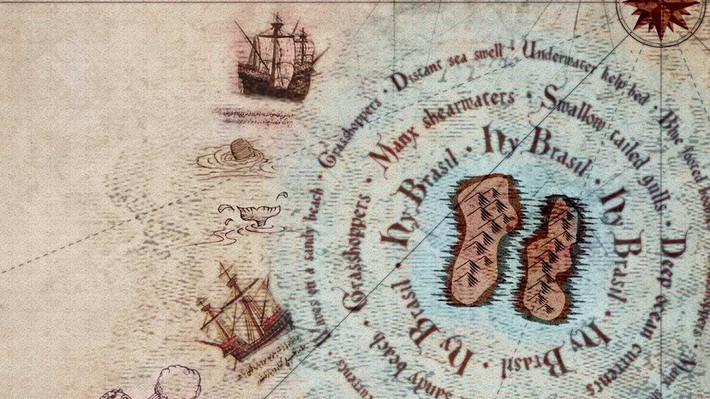 Grasshoppers · Distant sea swell · Underwater kelp bed · Blue footed
Waves on a sandy beach · Grasshoppers · Manx shearwaters · Swallow tailed gulls · Deep ocean currents
Hy Brasil · Hy Brasil · Hy Brasil · Hy Brasil · Hy Brasil · Hy Brasil
sandy beach
currents
Manx